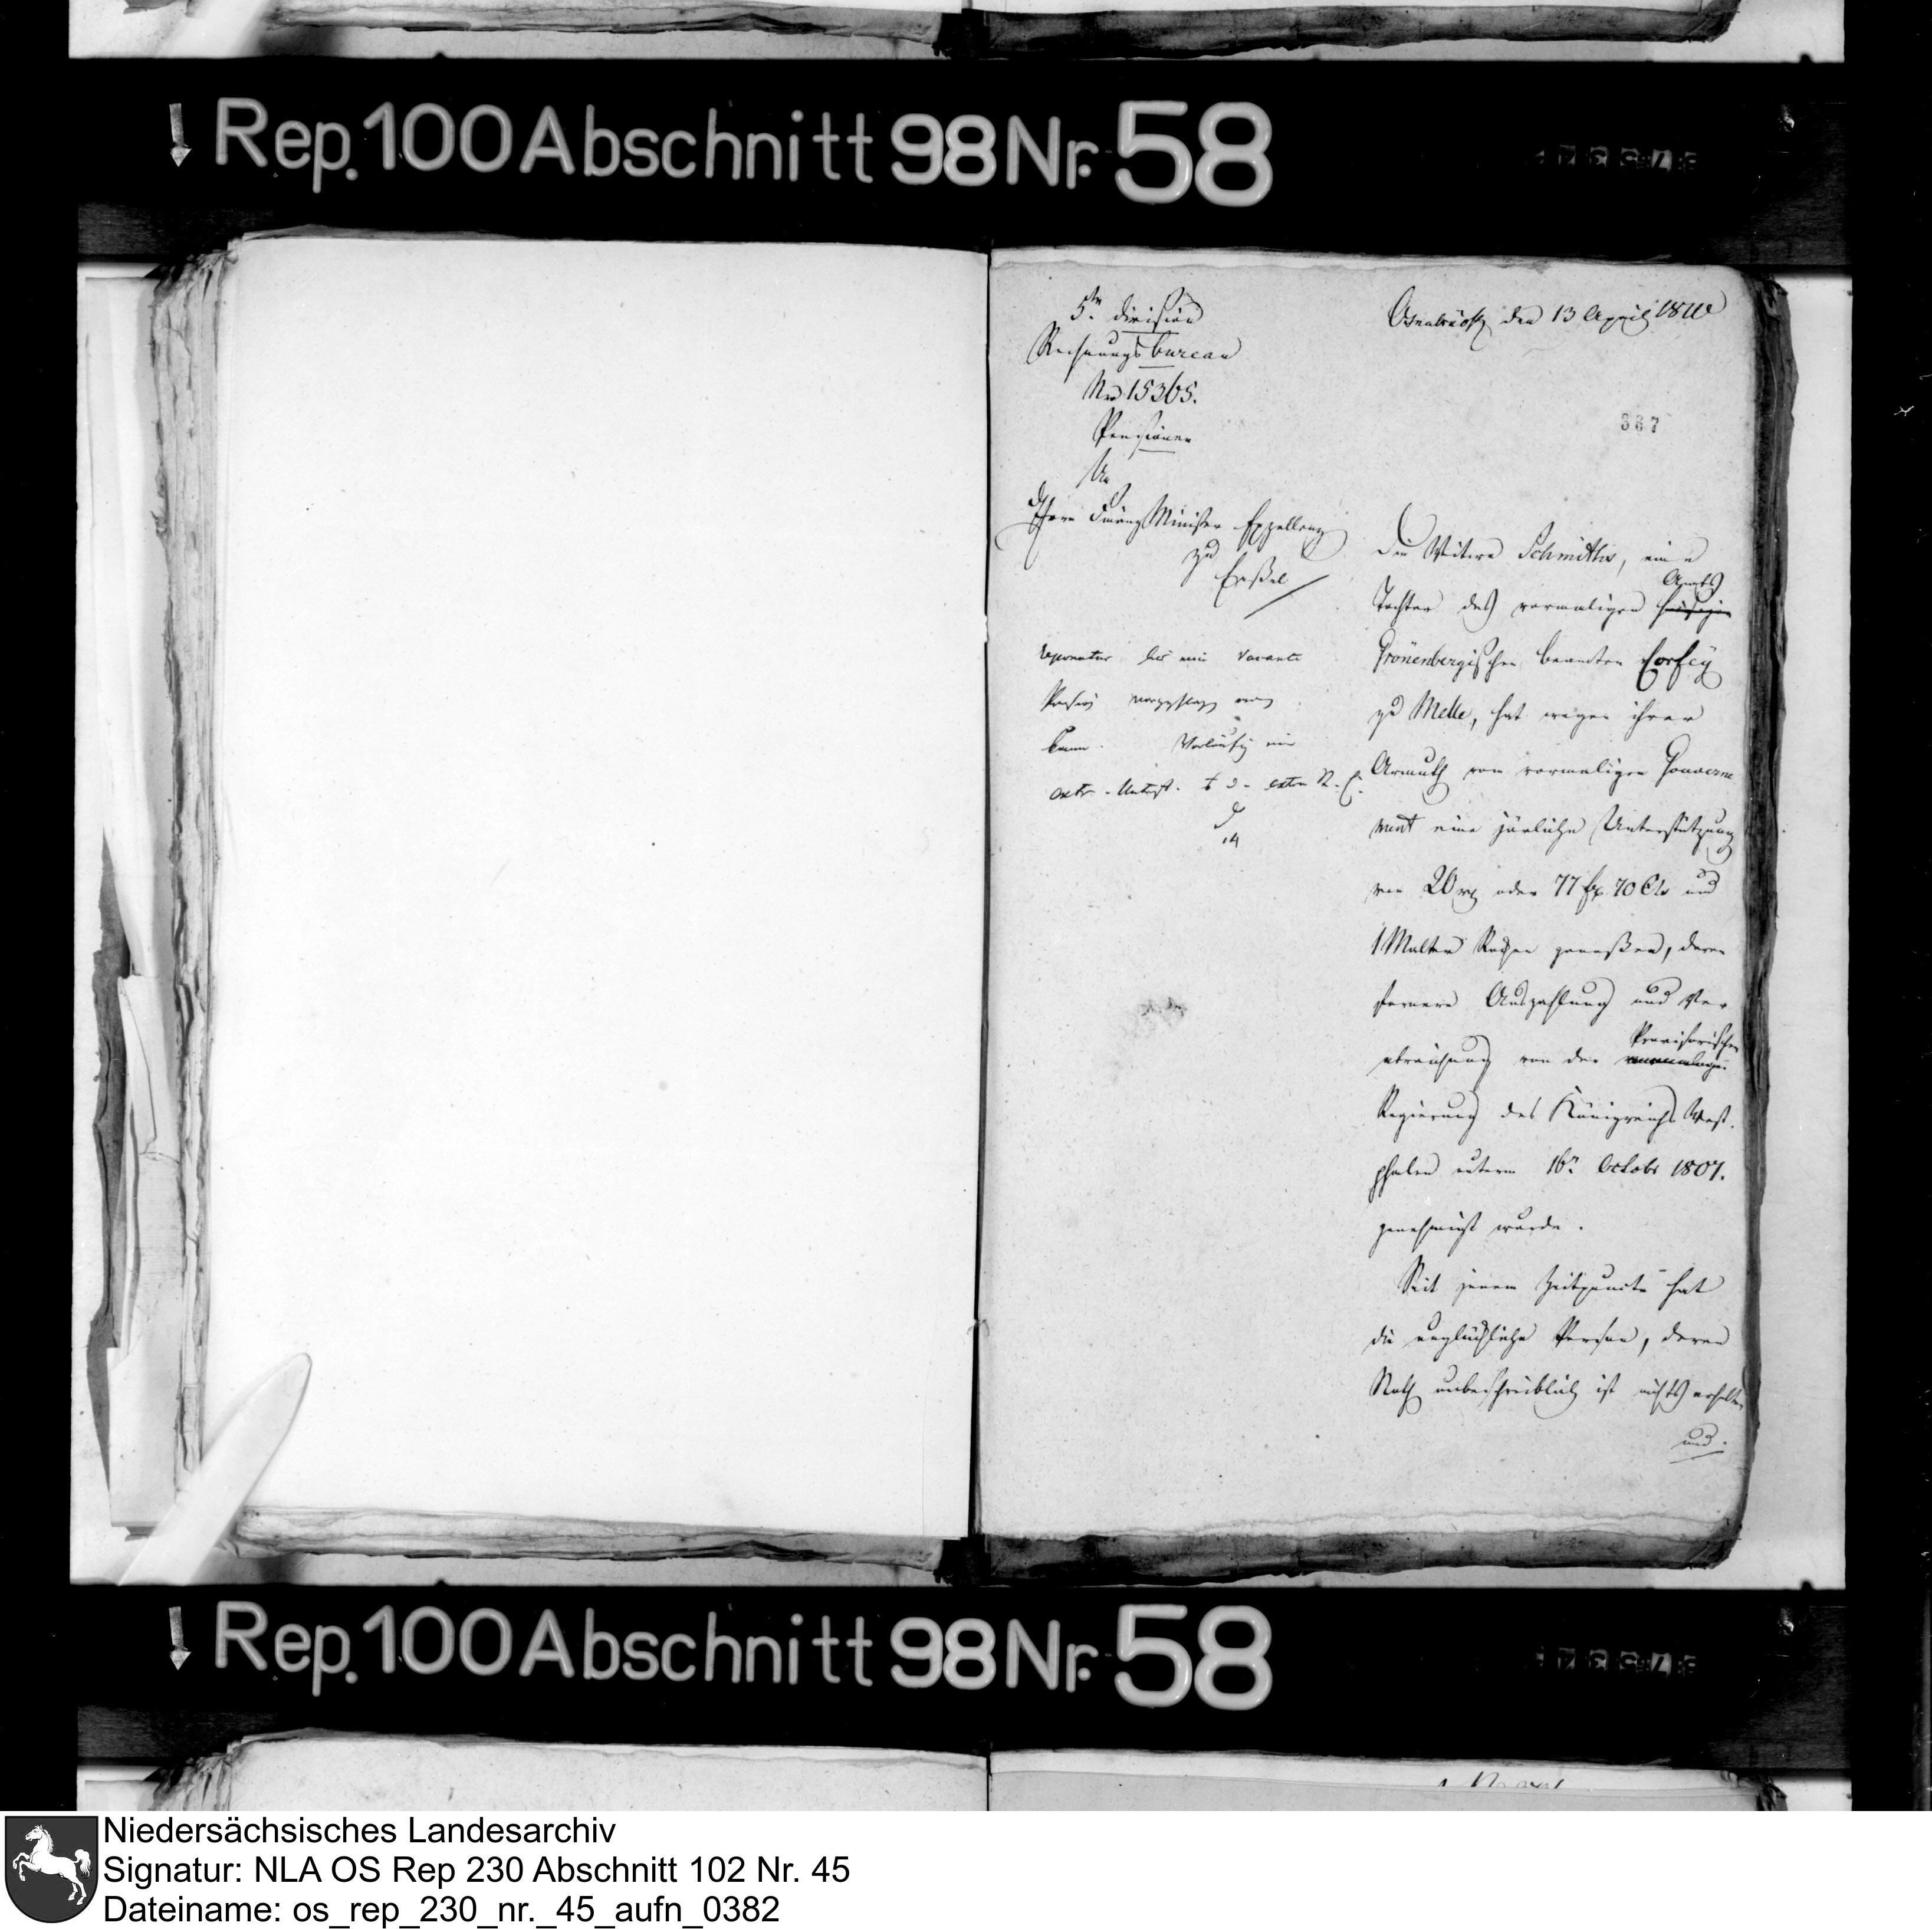 Rep. 100 Abschnitt 98 Nr. 58
5te division
Rechnungs bureau
No 15365.
Pensionen
An
Osnabrück den 13 April 1810
367
Ihro Finanz Minister Excellenz
zu
Caßel
reponatur bis eine vacante
Pension
kann. Vorläufig eine
extr. Unterst.
14
Die Witwe Schmitths, eine
Tochter des vormaligen Amts
Grönenbergischen beamten Corfey
zu Melle, hat wegen ihrer
Armuth vom vormaligen Gouverne
ment eine järliche Unterstützung
von 20 rt oder 77 fr. 70 Cts und
1 Malter Rocken genoßen, deren
fernere Auszahlung und Ver
abreichung von der Provisorischen
Regierung des Königreichs West-
phalen unterm 16n Octobr 1807.
genehmigt wurde.
Seit jenem Zeitpuncte hat
die unglückliche Person, deren
Noth unbeschreiblich ist nichts erhalten
und.
Rep. 100 Abschnitt 98 Nr. 58
Niedersächsisches Landesarchiv
Signatur: NLA OS Rep 230 Abschnitt 102 Nr. 45
Dateiname: os_rep_230_nr._45_aufn_0382